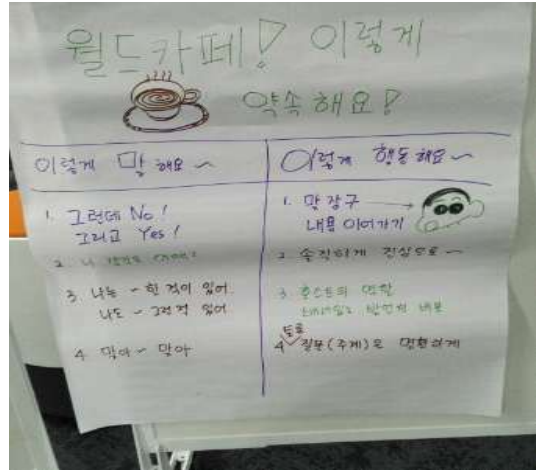 월드카페! 이렇게
약속해요!
이렇게 말해요~
1. 그런데 No!
그리고 Yes!
2. 나
3. 나는 ~ 한 적이 있어.
나도 ~ 그런 적 있어
4 맞아~ 맞아
이렇게 행동해요~
1. 맞장구
내용 이어가기
2 솔직하게 진심으로~
3 호스트의 역할
토론
4 질문(주제)은 명확하게